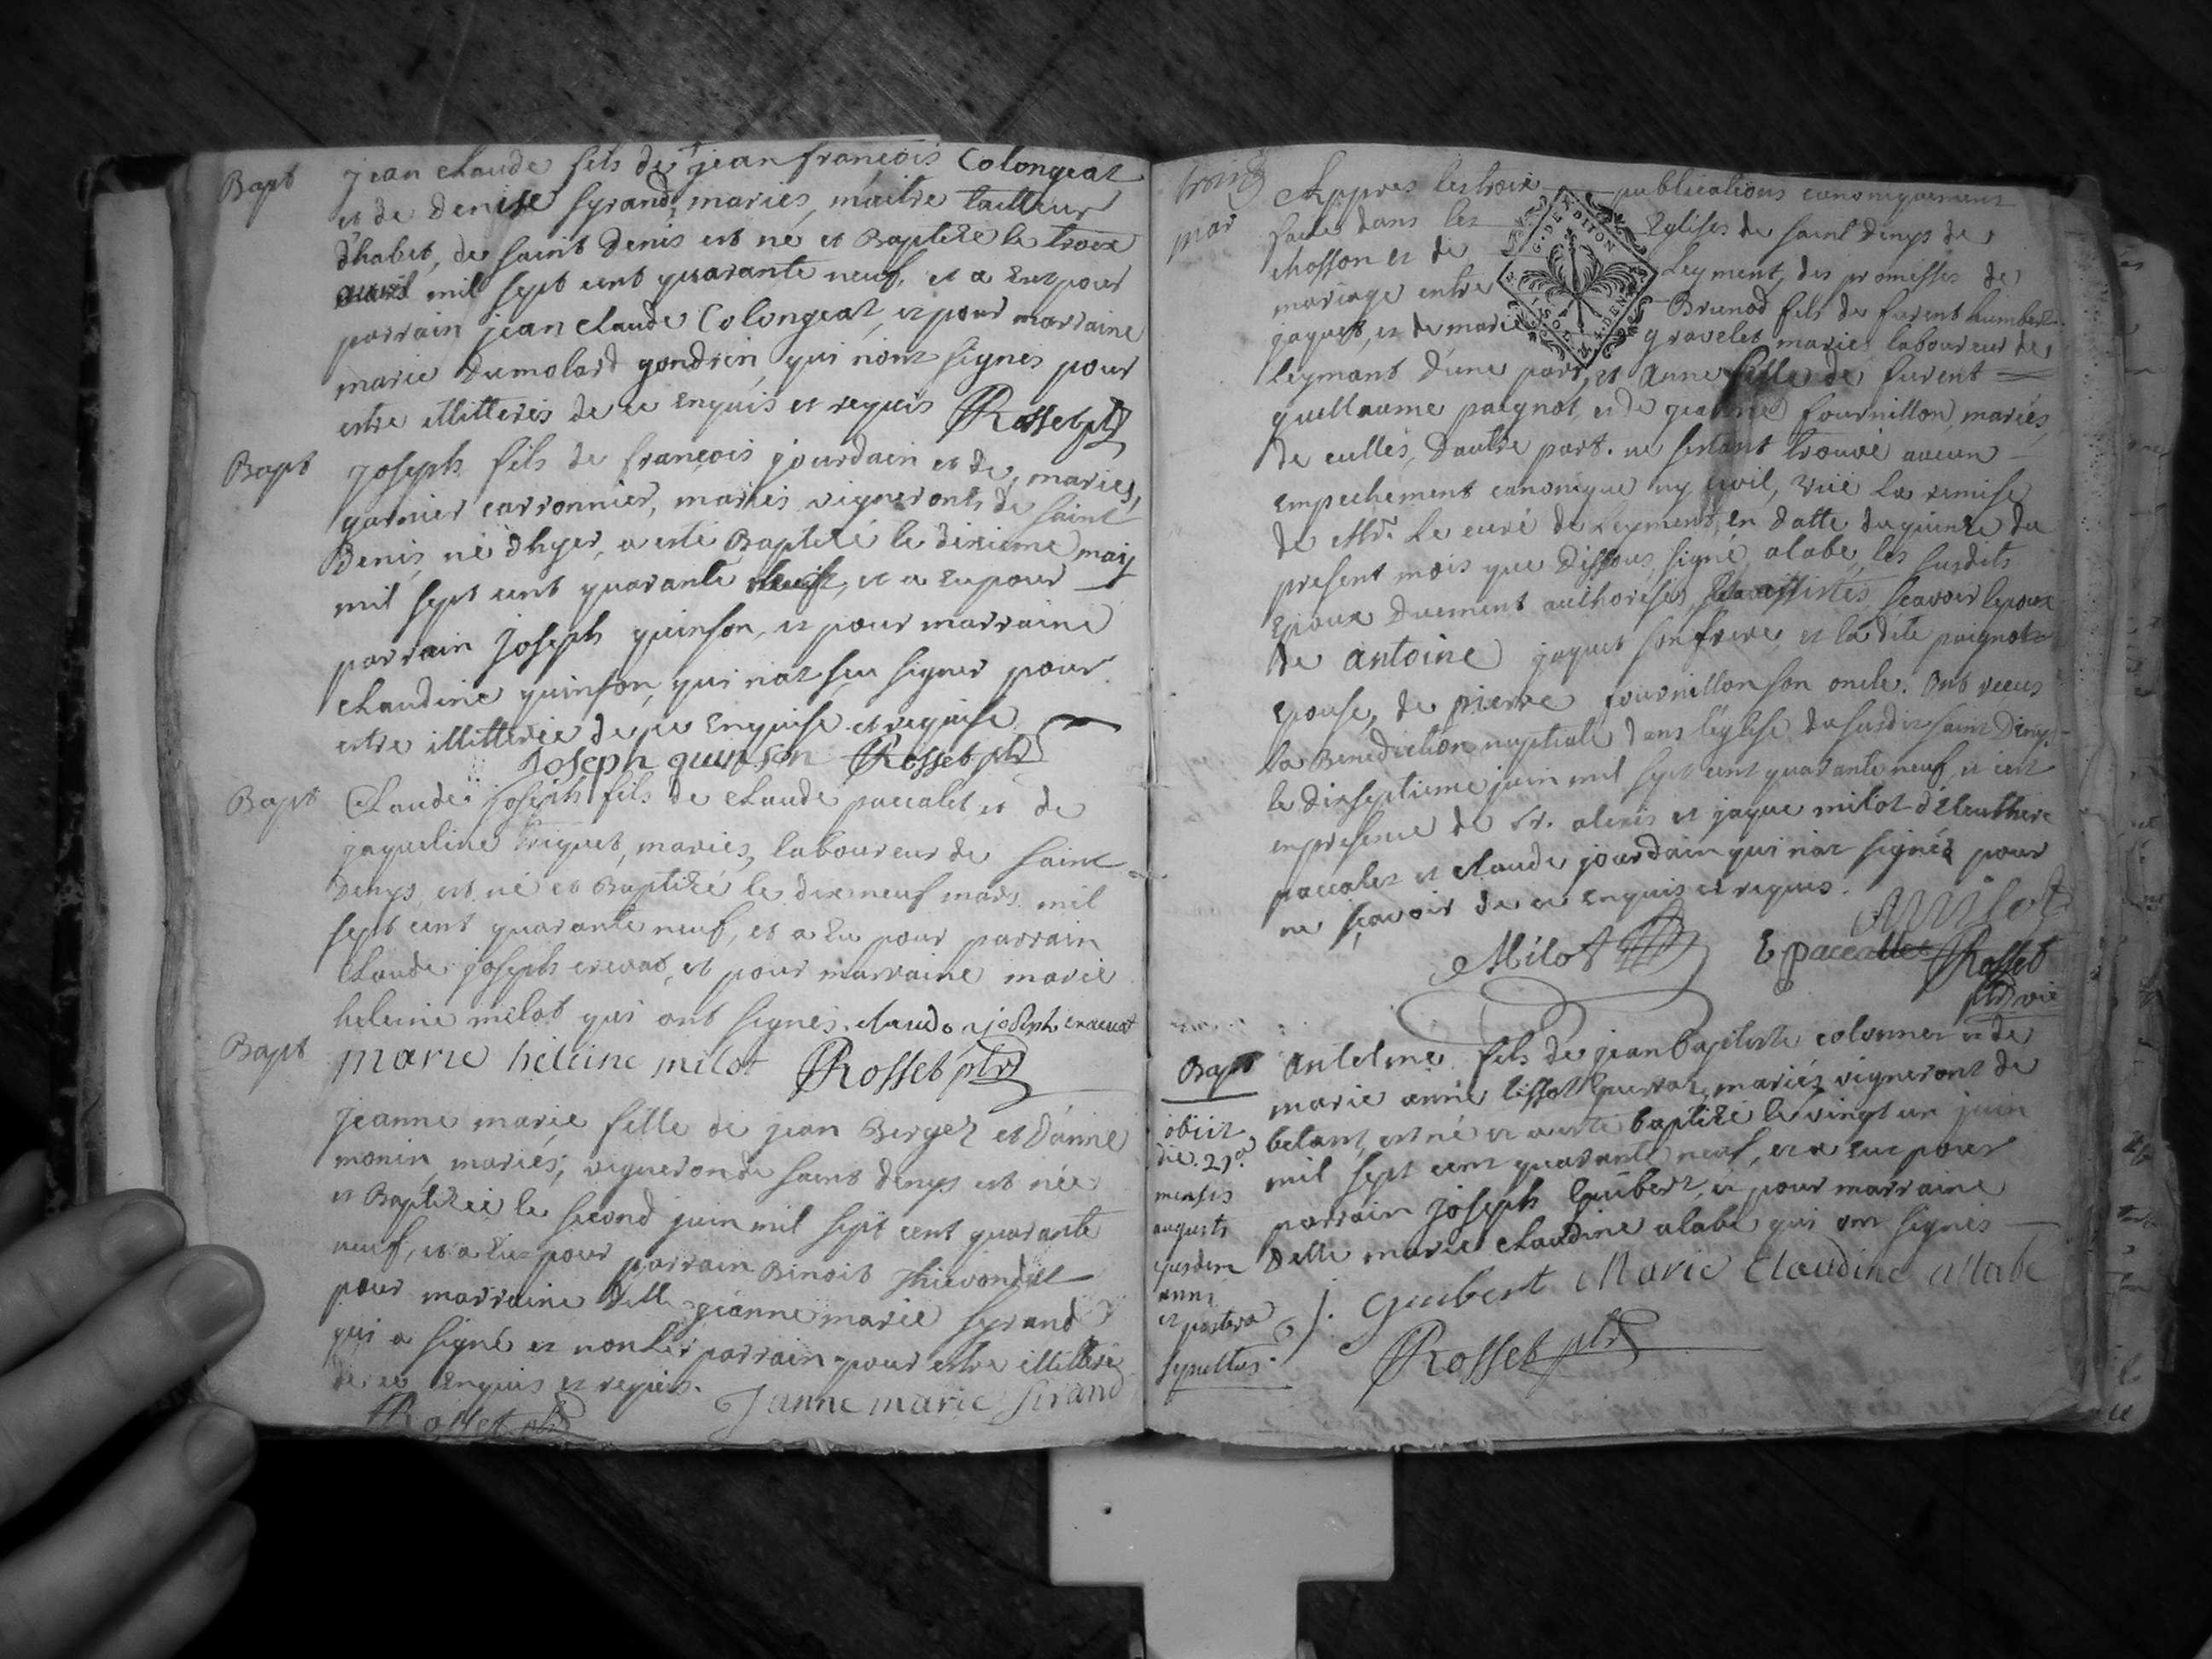 Bapt
jean claude fils de jean francois Colongeat
et de denise syrand, maries, maitre tailleur
d'habit, de saint denis est né et Baptizé le troix
avril mil sept cent quarante neuf, et a eut pour
parrain jean claude Colongeat, et pour marraine
marie dumolard gondrin, qui n'ont signés pour
estre illitterés de ce enquis et requis Rosset ptre
Bapt
Joseph fils de francois jourdain et de, maries,
garnier carronnier, mariés vignerons de saint
Denis, né d'hyer, a esté Baptizé le dixieme may
mil sept cent quarante neuf, et a eu pour
parrain Joseph quinson, et pour marraine
claudine quinson, qui n'at sçu signer pour
estre illitterée de ce enquise et requise
Joseph quinson Rosset ptre
Bapt
Claude joseph fils de claude paccalet et de
jaqueline triquet, mariés, laboureur de saint
denys est né et Baptizé le dixneuf mars mil
sept cent quarante neuf, et a eu pour parrain
claude joseph crevat, et pour marraine marie
heleine milot qui ont signés. claude joseph
marie heleine milot Rosset ptre
Bapt
jeanne marie fille de jean Berger et d'anne
monin, mariés, vigneron de saint denys est née
et Baptizée le second juin mil sept cent quarante
neuf, et a eu pour parrain Binoit
pour marraine delle jeanne marie syrand
qui a signé et non le parrain pour estre illitteré
de ce enquis et requis. Janne marie Sirand
Rosset ptre
mar
Appres les troix publications canoniquement
faites dans les Eglises de saint denys de
chosson et de Leyment, des promisses de
mariage entre Brunod fils de furent humbert
jaquet, et de marie gravelet mariés laboureur de
leymant d'une part, et anne fille de furent
guillaume paignot, et de jeanne fournillon, mariés,
de cullés, d'autre part. ne s'etant trouvé aucun
empechement canonique ny civil, vüe la remise
de Mr. Le curé de Leyment, en datte du quinze du
present mois que dessous, signé alabe, les susdits
Epoux duement authorisés, et assistés, scavoir lepoux
de antoine jaquet son frere, et la dite paignot
Epouse, de pierre fournillon son oncle. Ont receus
la Benediction nuptiale dans l'eglise du susdit saint Denys
le dixseptieme juin mil sept cent quarante neuf, et cest
en presence de sr. alexis et jaque milot d'Eleuthere
paccalet et claude jourdain qui n'at signé pour
ne sçavoir de ce enquis et requis.
AMilot
Milot E paccallet Rosset
ptre vic
Bapt
Antelme fils de jean baptiste colomner et de
marie anne lissot mariés vigneront de
betant, est né et a esté baptizé le vingt un juin
mil sept cent quarante neuf, et a eut pour
parrain joseph Guibert, et pour marraine
Delle marie claudine alabe qui ont signés
J. Guibert Marie Claudine allabe
Rosset ptre
obiit
die. 29a
mensis
augusti
ejusdem
anni
et postera
sepultus.